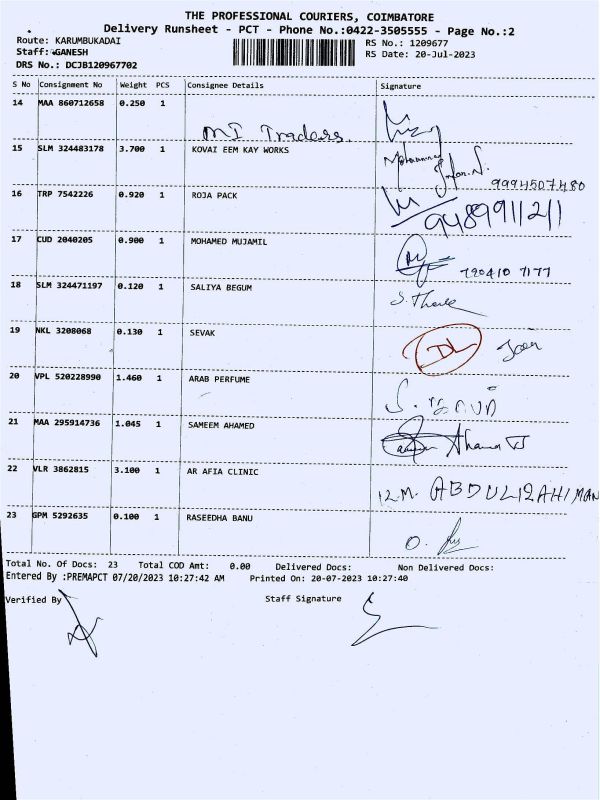 THE PROFESSIONAL COURIERS, COIMBATORE
Delivery Runsheet - PCT - Phone No.:0422-3505555 - Page No.:2
Route: KARUMBUKADAI
RS No.: 1209677
Staff: GANESH
RS Date: 20-Jul-2023
DRS No.: DCJB120967702
S No Consignment No Weight PCS Consignee Details Signature
14 MAA 860712658 0.250 1
MI Traders
15 SLM 324483178 3.700 1 KOVAI EEM KAY WORKS
9994507480
16 TRP 7542226 0.920 1 ROJA PACK
9489911211
17 CUD 2040205 0.900 1 MOHAMED MUJAMIL
720410 7177
18 SLM 324471197 0.120 1 SALIYA BEGUM
19 NKL 3208068 0.130 1 SEVAK
DL
20 VPL 520228990 1.460 1 ARAB PERFUME
21 MAA 295914736 1.045 1 SAMEEM AHAMED
22 VLR 3862815 3.100 1 AR AFIA CLINIC
R.M. ABDULRAHIMAN
23 GPM 5292635 0.100 1 RASEEDHA BANU
Total No. Of Docs: 23 Total COD Amt: 0.00 Delivered Docs: Non Delivered Docs:
Entered By :PREMAPCT 07/20/2023 10:27:42 AM Printed On: 20-07-2023 10:27:40
Verified By Staff Signature